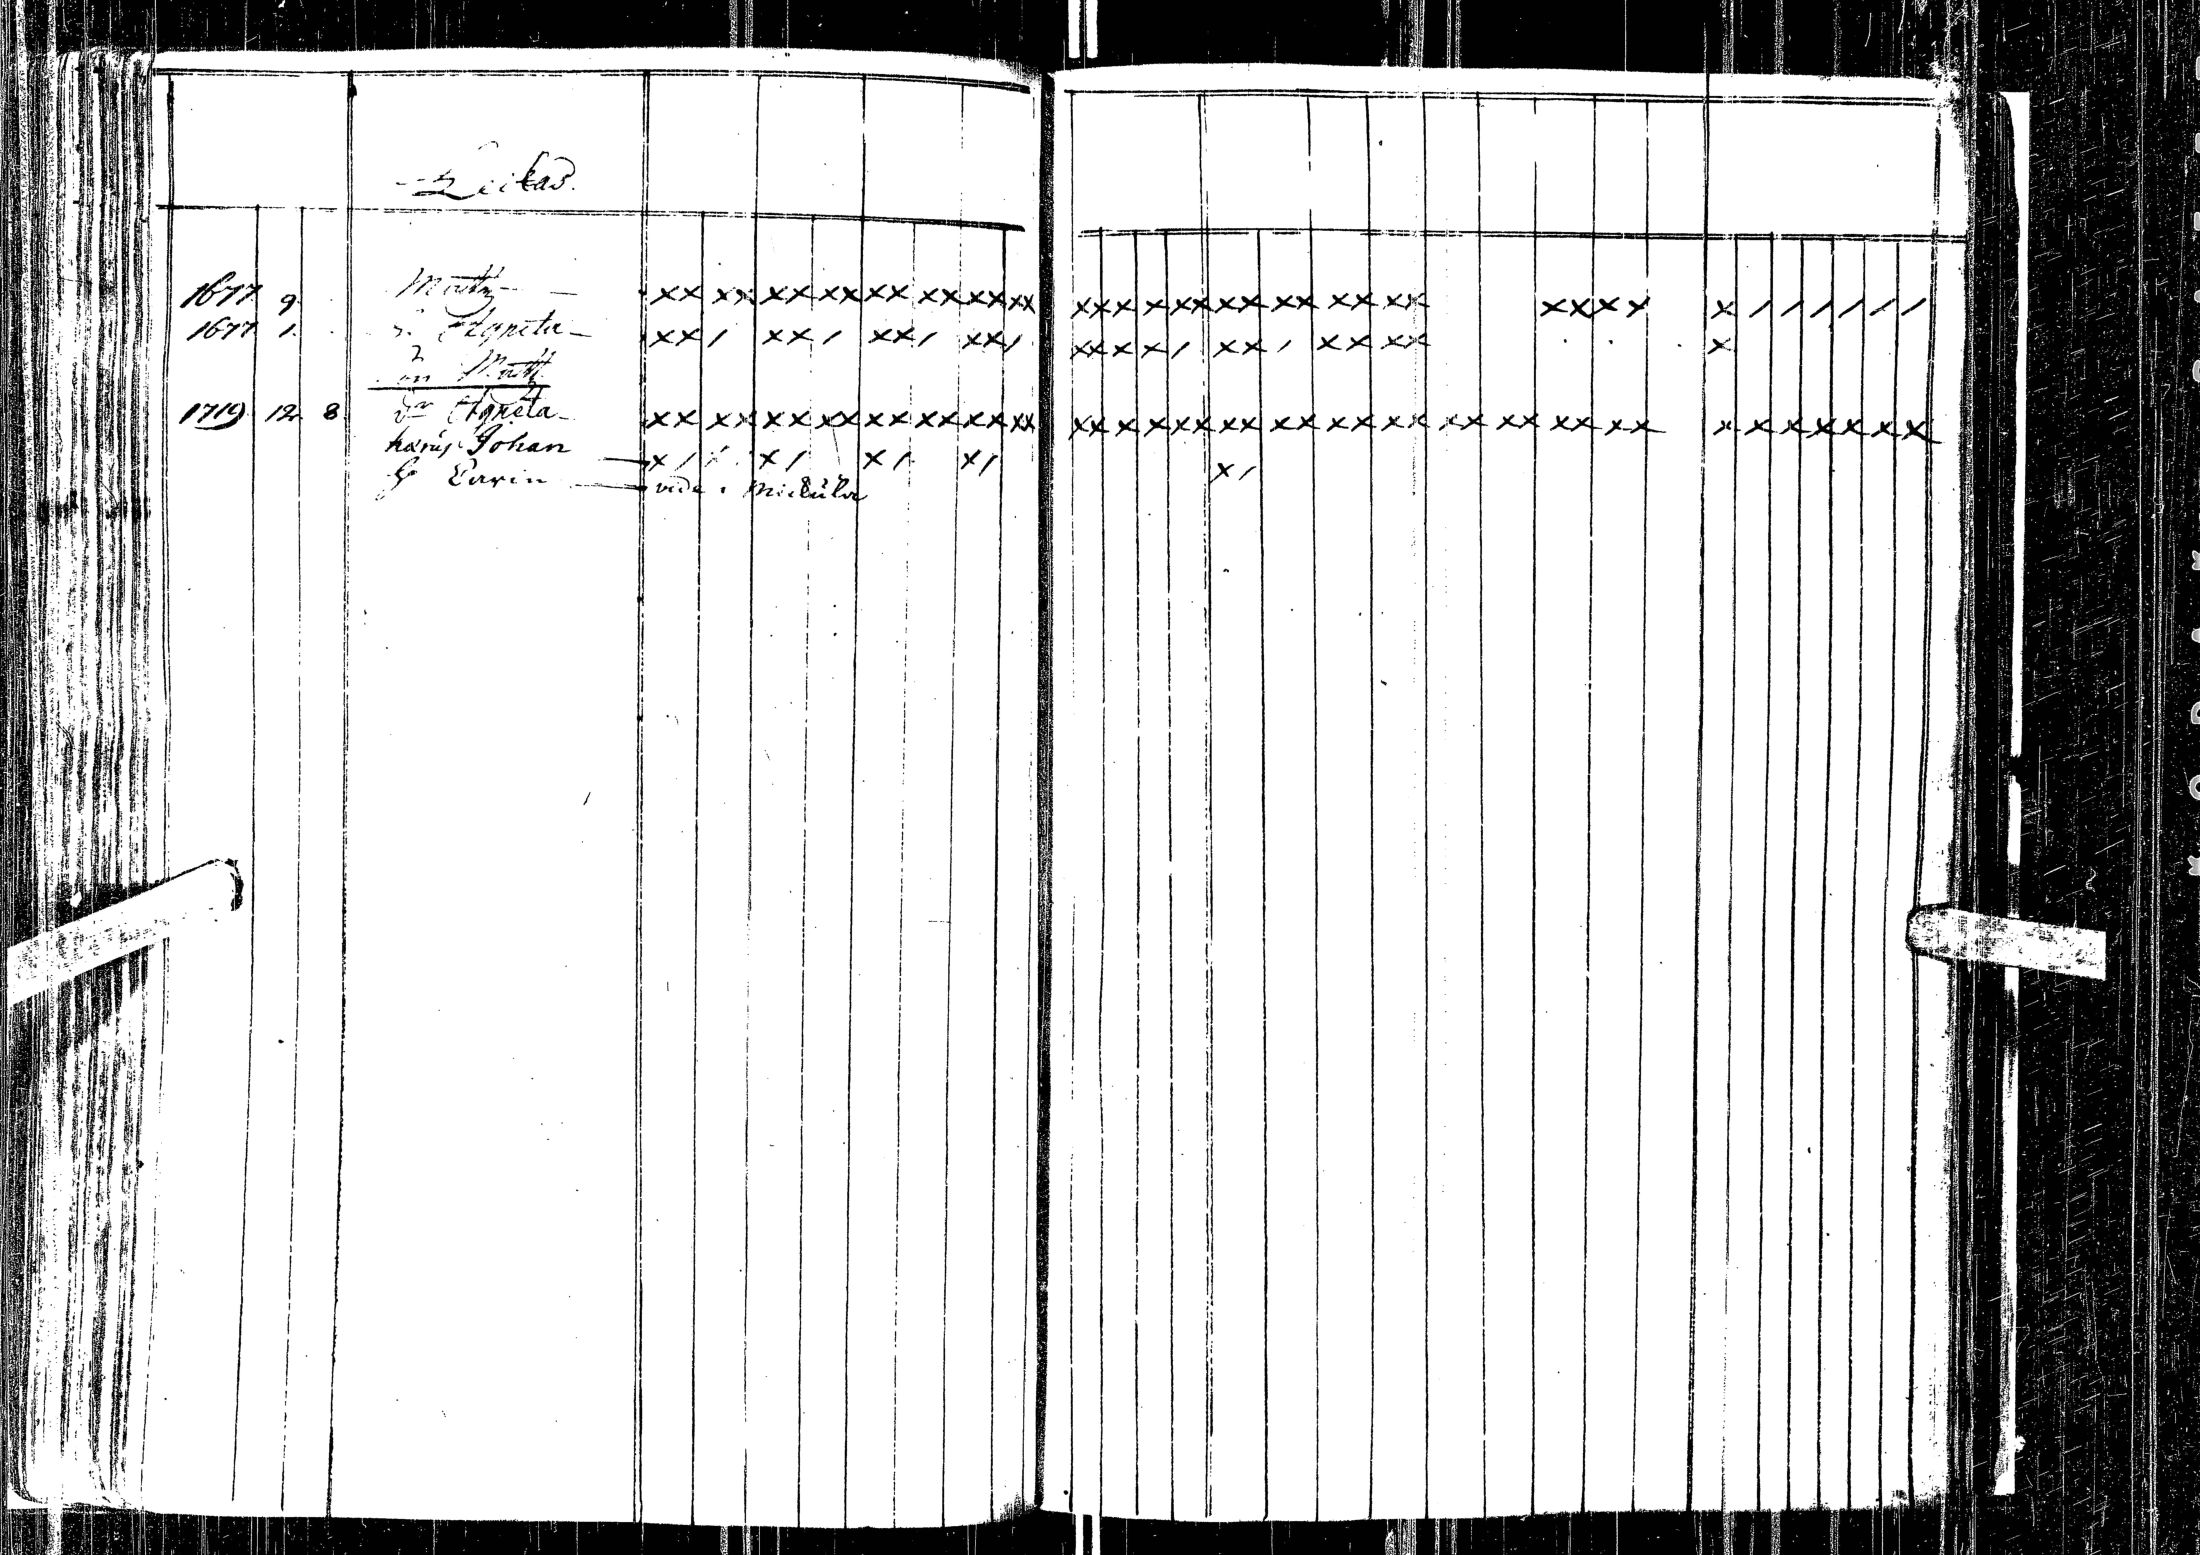 Leikas.
1677 9 Matts xx xx xx xx xx xx xx xx xxx x xx xx xx xx xx xxxx x / / / / / /
1677 1. h. Agneta xx/ xx/ xx/ xx/ xx x x/ xx/ xx xx x
Matts
1719 12 8 dr Agneta xx xx xx xx xx xx xx xx xx x x xx xx xx xx xx xx xx xx xx x x x x x x x
Johan x/ x/ x/ x/ x/
h Carin vide Mickula